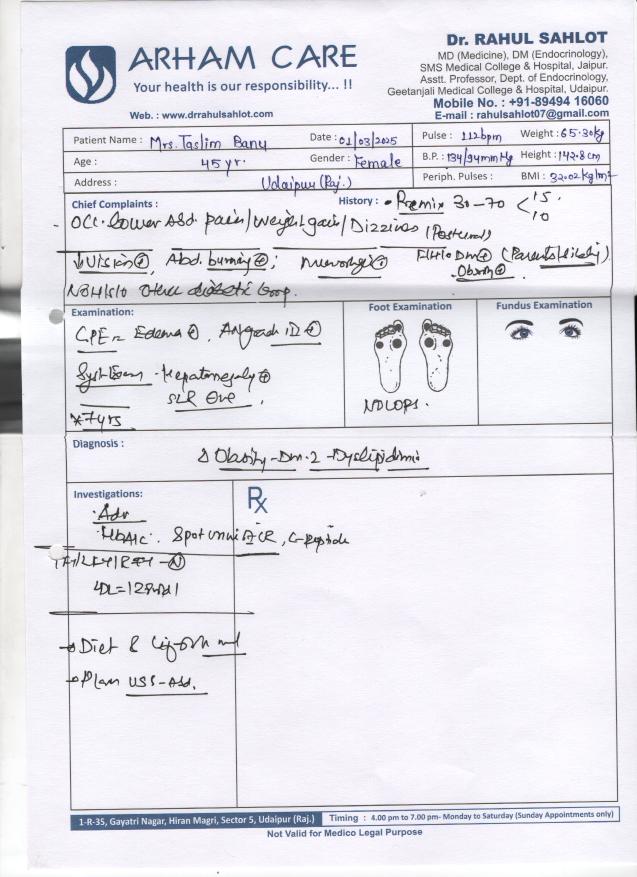 ARHAM CARE
Your health is our responsibility... !!
Web. : www.drrahulsahlot.com
Dr. RAHUL SAHLOT
MD (Medicine), DM (Endocrinology),
SMS Medical College & Hospital, Jaipur.
Asstt. Professor, Dept. of Endocrinology,
Geetanjali Medical College & Hospital, Udaipur.
Mobile No. : +91-89494 16060
E-mail : rahulsahlot07@gmail.com
Patient Name : Mrs. Taslim Banu Date : 01/03/2025 Pulse : 112bpm Weight : 65.30kg
Age : 45 yr. Gender : Female B.P. : 134/94mmHg Height : 142.8cm
Address : Udaipur (Raj.) Periph. Pulses : BMI : 32.02 kg/m²
Chief Complaints : History : Remix 30-70 < 15 10
Occ. Lower Abd. pain/Weight gain/Dizziness (Postural)
↓Vision⊕, Abd. burning⊕; F/H/O DM⊕ (Parents/
Obesity⊕
other diabetic
Examination: Foot Examination Fundus Examination
GPE- Edema⊕,
Syst Exam - Hepatomegaly⊕
SLR
*7yrs
NDLOPS.
Diagnosis :
Obesity-Dm-2-Dyslipidemia
Investigations: Rx
Adv
HbA1c. Spot urine ACR, C-Peptide
/LFT/RFT-(N)
LDL=128
→ Diet &
→ Plan USS-Abd.
1-R-35, Gayatri Nagar, Hiran Magri, Sector 5, Udaipur (Raj.) Timing : 4.00 pm to 7.00 pm- Monday to Saturday (Sunday Appointments only)
Not Valid for Medico Legal Purpose